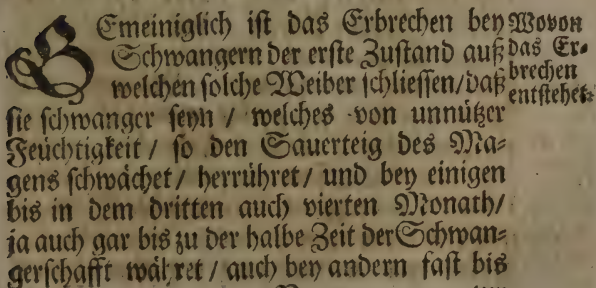 GEmeiniglich ist das Erbrechen bey
Schwangern der erste Zustand auß
welchen solche Weiber schliessen/daß
sie schwanger seyn / welches von unnützer
Feuchtigkeit / so den Sauerteig des Ma⸗
gens schwächet/ herrühret/ und bey einigen
bis in dem dritten auch vierten Monath/
ja auch gar bis zu der halbe Zeit der Schwan⸗
gerschafft währet / auch bey andern fast bis
Wovon
das Er⸗
brechen
entstehet.